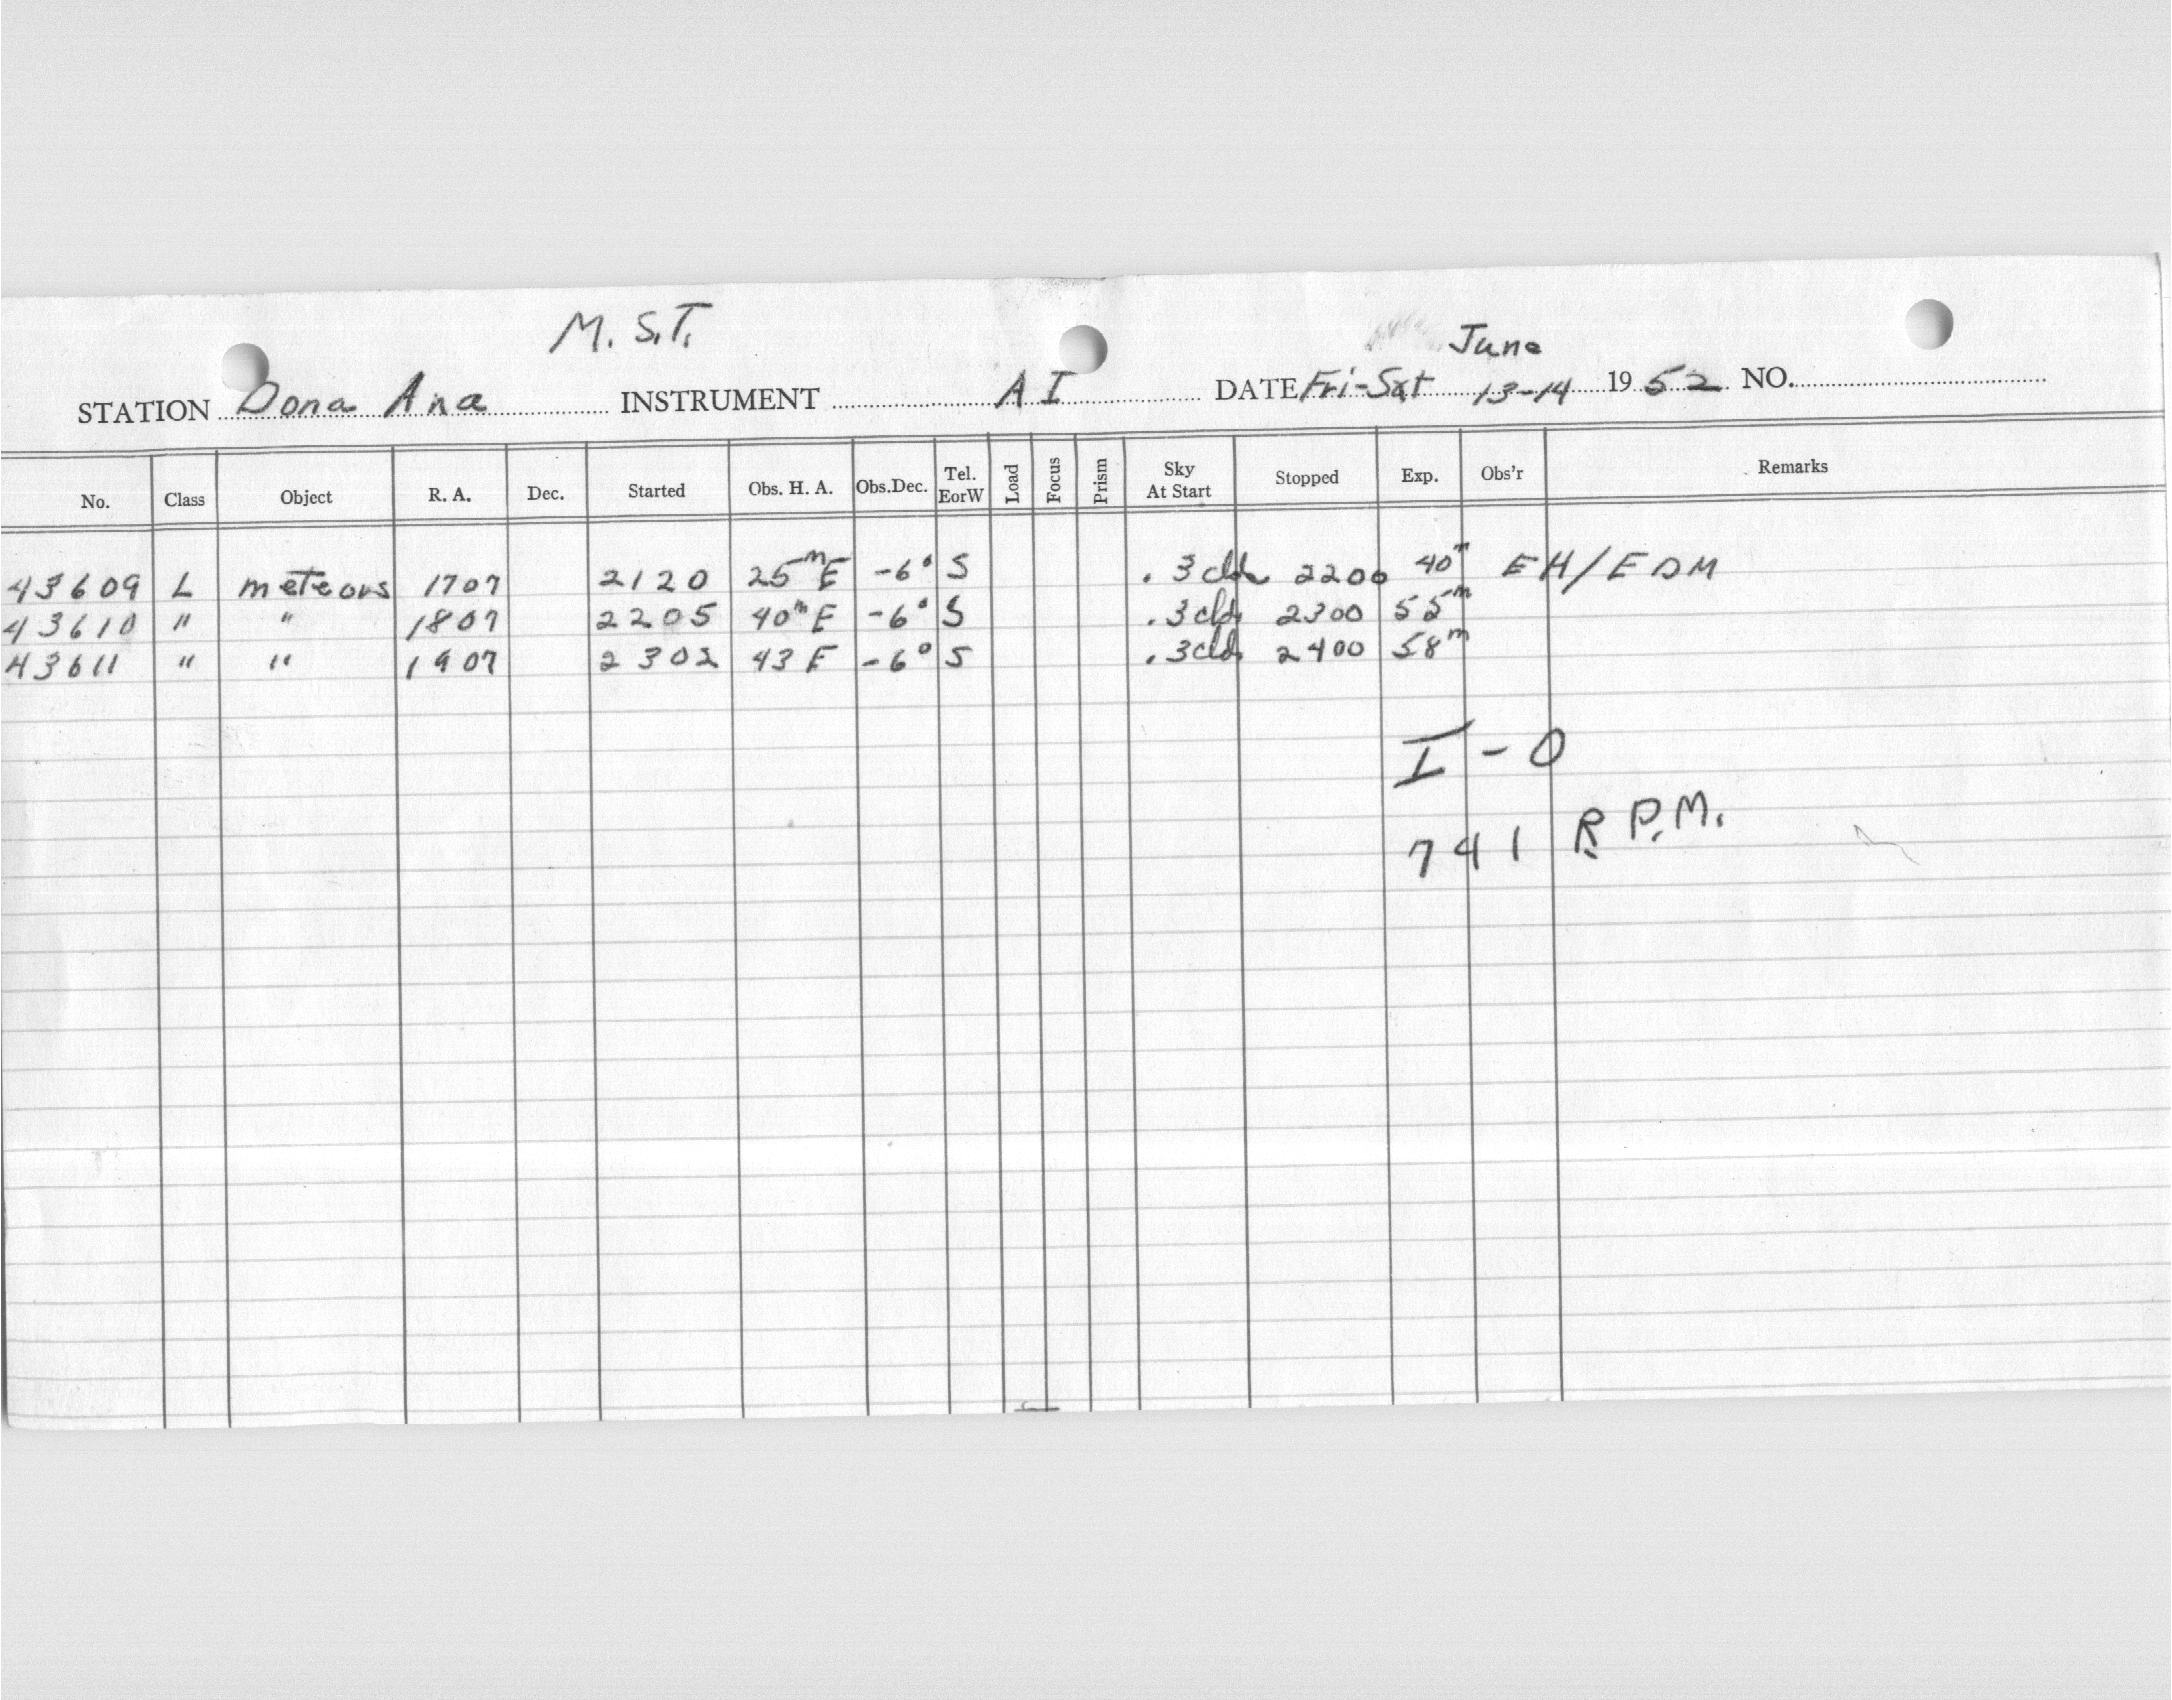 M. S.T.
June
STATION Dona Ana INSTRUMENT AI DATE Fri-Sat 13-14 1952 NO.
No. Class Object R. A. Dec. Started Obs. H. A. Obs.Dec. Tel. EorW Load Focus Prism Sky At Start Stopped Exp. Obs'r Remarks
43609 L meteors 1707 2120 25m E -6° S .3 cld. 2200 40m EH/EDM
43610 " " 1807 2205 40m E -6° S .3 cld. 2300 55m
43611 " " 1907 2302 43 E -6° S .3 cld. 2400 58m
I - 0
741 R.P.M.